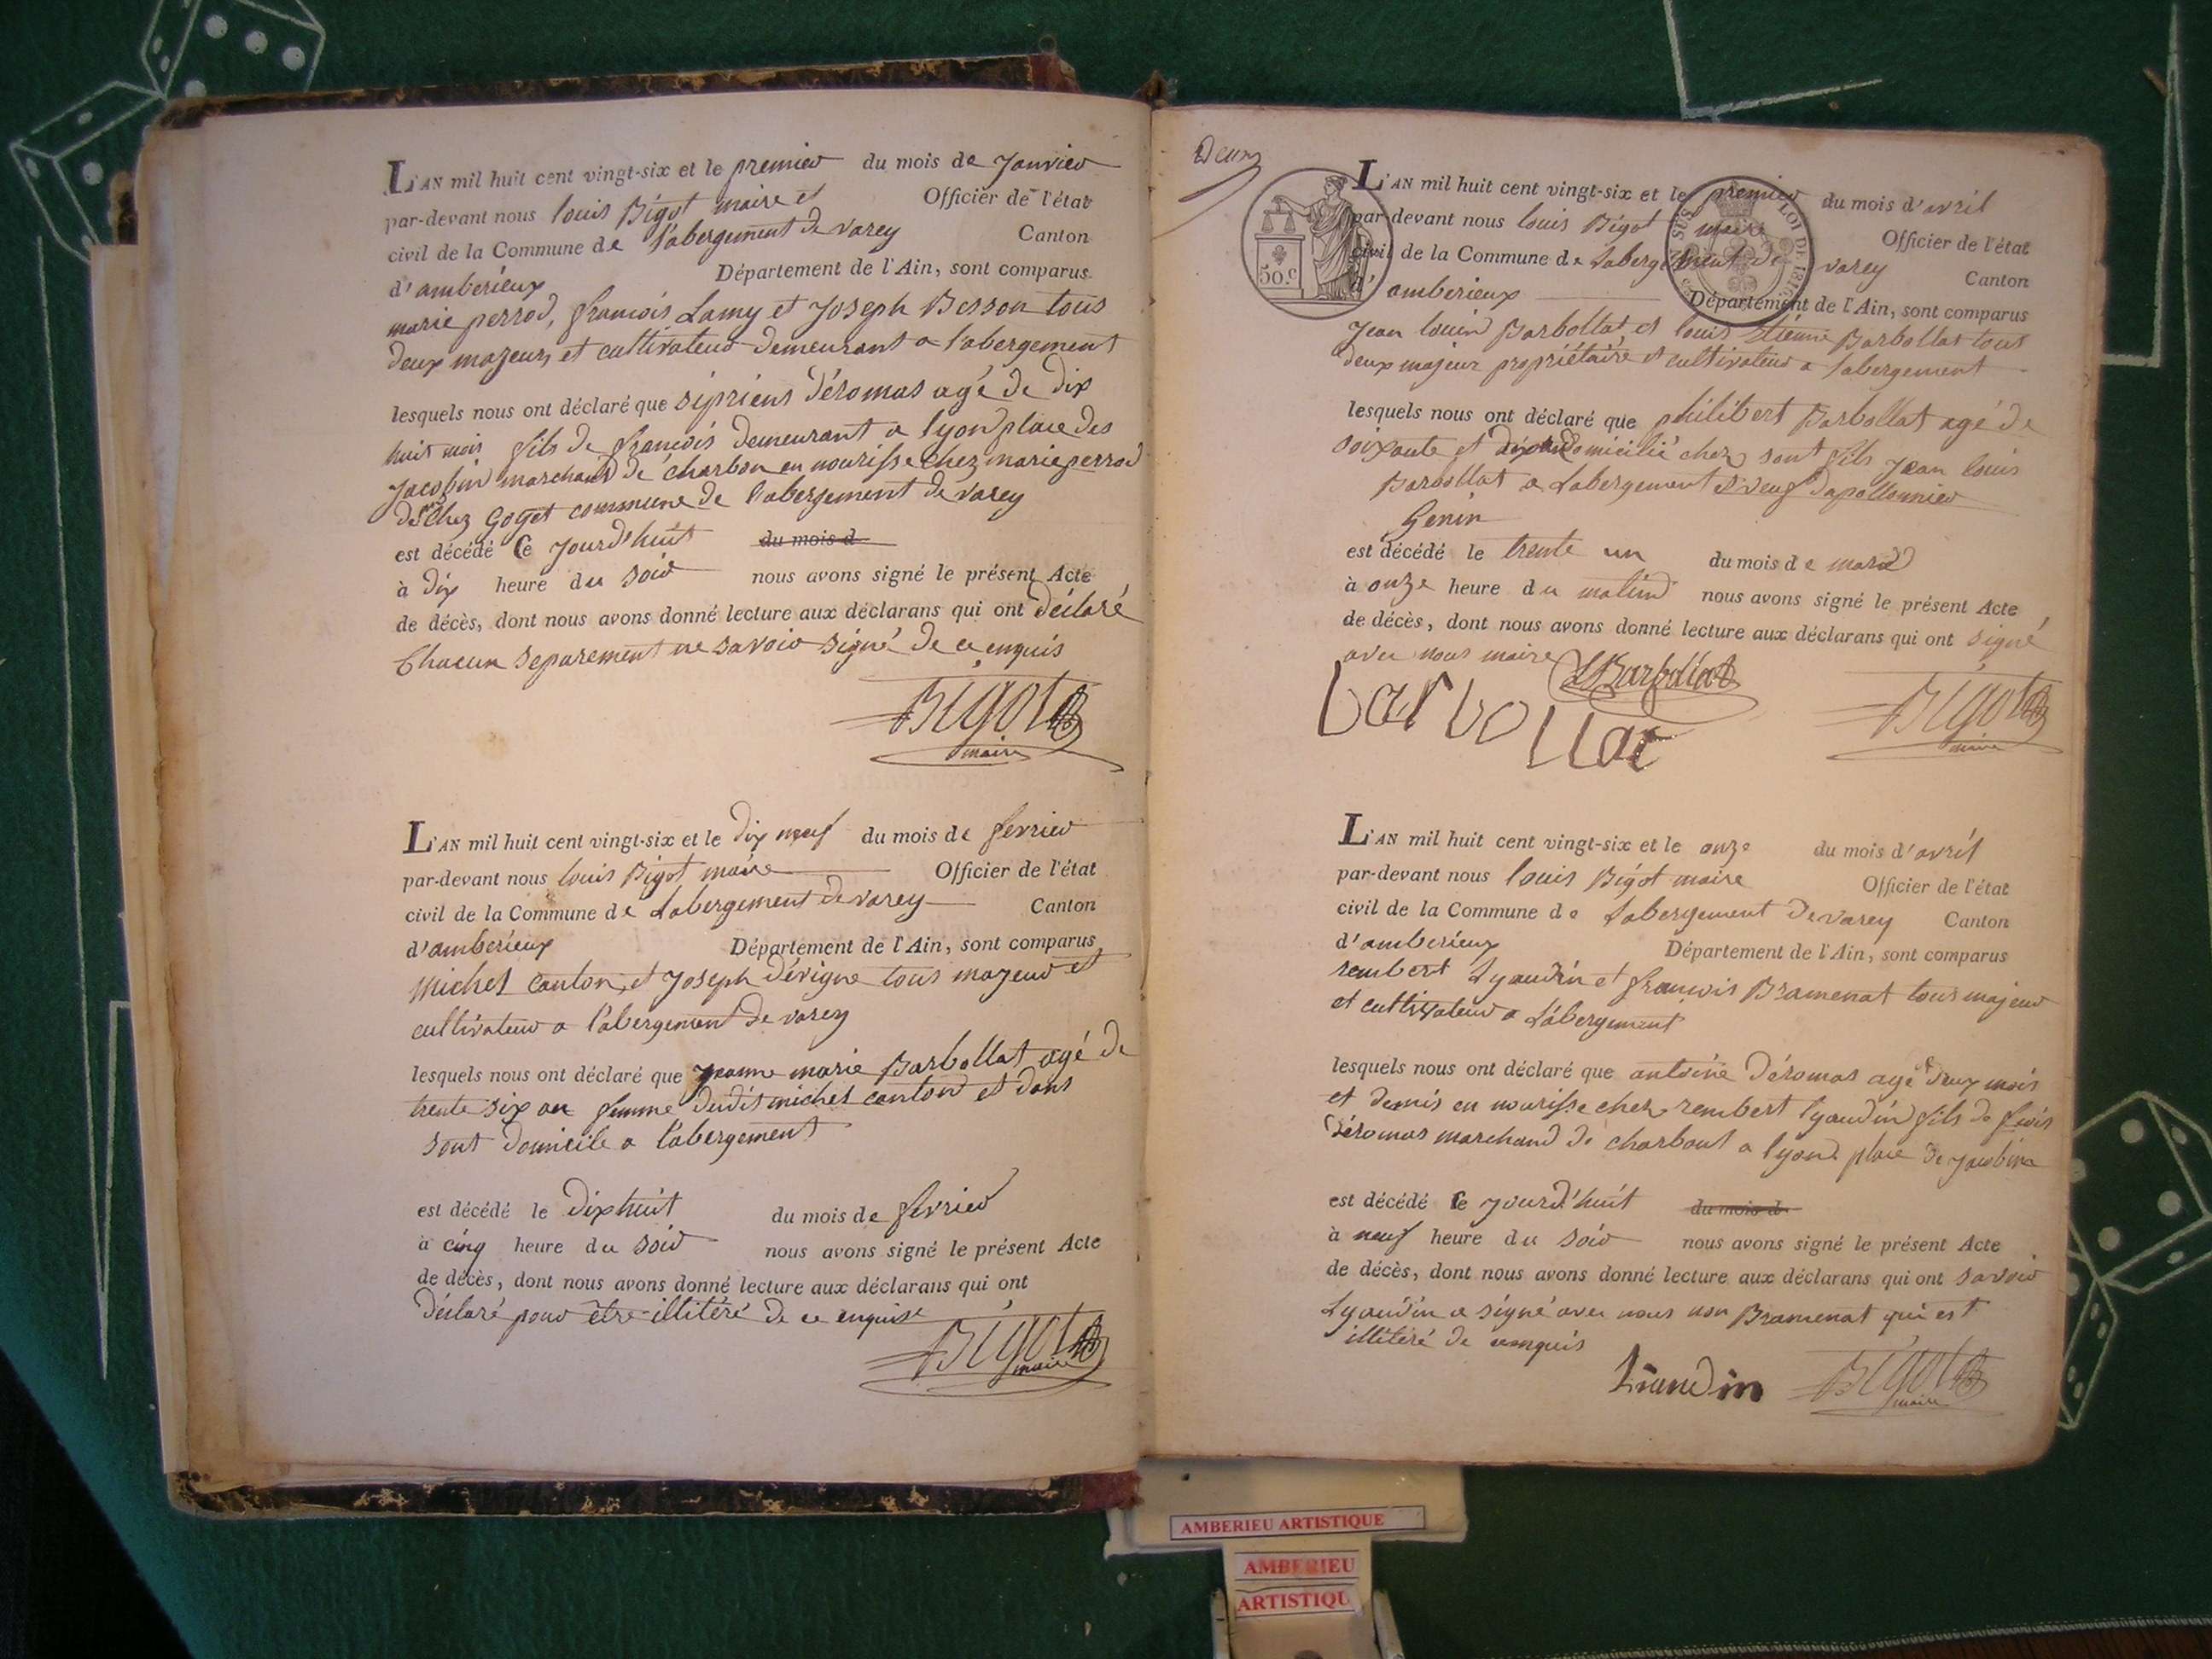 L'AN mil huit cent vingt-six et le premier du mois de Janvier
par-devant nous louis Bigot maire et Officier de l'état
civil de la Commune de l'abergement de varey Canton
d'amberieux Département de l'Ain, sont comparus
marie perrod, francois Lamy et Joseph Besson tous
deux majeurs et cultivateur demeurant a l'abergement
lesquels nous ont déclaré que sipriens déromas agé de dix
huit mois fils de francois demeurant a lyon place des
Jacobin marchand de charbon en nourisse chez marie perrod
de chez Goget commune de l'abergement de varey
est décédé Ce Jourd'huit du mois d
à dix heure du soir nous avons signé le présent Acte
de décès, dont nous avons donné lecture aux déclarans qui ont déclaré
Chacun séparement ne savoir signé de ce enquis
Bigot
maire
L'AN mil huit cent vingt-six et le dix neuf du mois de fevrier
par-devant nous louis Bigot maire Officier de l'état
civil de la Commune de Labergement de varey Canton
d'amberieux Département de l'Ain, sont comparus
michel Canton et Joseph dévigne tous majeur et
cultivateur a l'abergement de varey
lesquels nous ont déclaré que jeanne marie Barbollat agé de
trente six an femme dudit michel canton et dans
sont domicile a l'abergement
est décédé le dixhuit du mois de fevrier
à cinq heure du soir nous avons signé le présent Acte
de décès, dont nous avons donné lecture aux déclarans qui ont
déclaré pour être illitéré de ce enquise
Bigot
maire
Deux
50 c.
LOI DE 1816
L'AN mil huit cent vingt-six et le premier du mois d'avril
par-devant nous louis Bigot maire Officier de l'état
civil de la Commune de Labergement de varey Canton
d'amberieux Département de l'Ain, sont comparus
Jean louis Barbollat et louis étienne Barbollat tous
deux majeur propriétaire et cultivateur a l'abergement
lesquels nous ont déclaré que philibert Barbollat agé de
soixante et domicilié chez sont fils Jean louis
Barbollat a Labergement et veuf dapollonnier
Genin
est décédé le trente un du mois de mars
à onze heure du matin nous avons signé le présent Acte
de décès, dont nous avons donné lecture aux déclarans qui ont signé
avec nous maire Barbollat
barbollat
Bigot
maire
L'AN mil huit cent vingt-six et le onze du mois d'avril
par-devant nous louis Bigot maire Officier de l'état
civil de la Commune de Labergement de varey Canton
d'amberieux Département de l'Ain, sont comparus
rembert Lyaudin et francois Bramenat tous majeur
et cultivateur a Labergement
lesquels nous ont déclaré que antoine déromas agé de deux mois
et demis en nourisse chez rembert lyaudin fils de
déromas marchand de charbont a lyon place de Jacobin
est décédé Ce Jourd'huit du mois d
à neuf heure du soir nous avons signé le présent Acte
de décès, dont nous avons donné lecture aux déclarans qui ont savoir
Lyaudin a signé avec nous non Bramenat qui est
illitéré de
Liaudin Bigot
maire
AMBERIEU ARTISTIQUE
AMBERIEU
ARTISTIQU